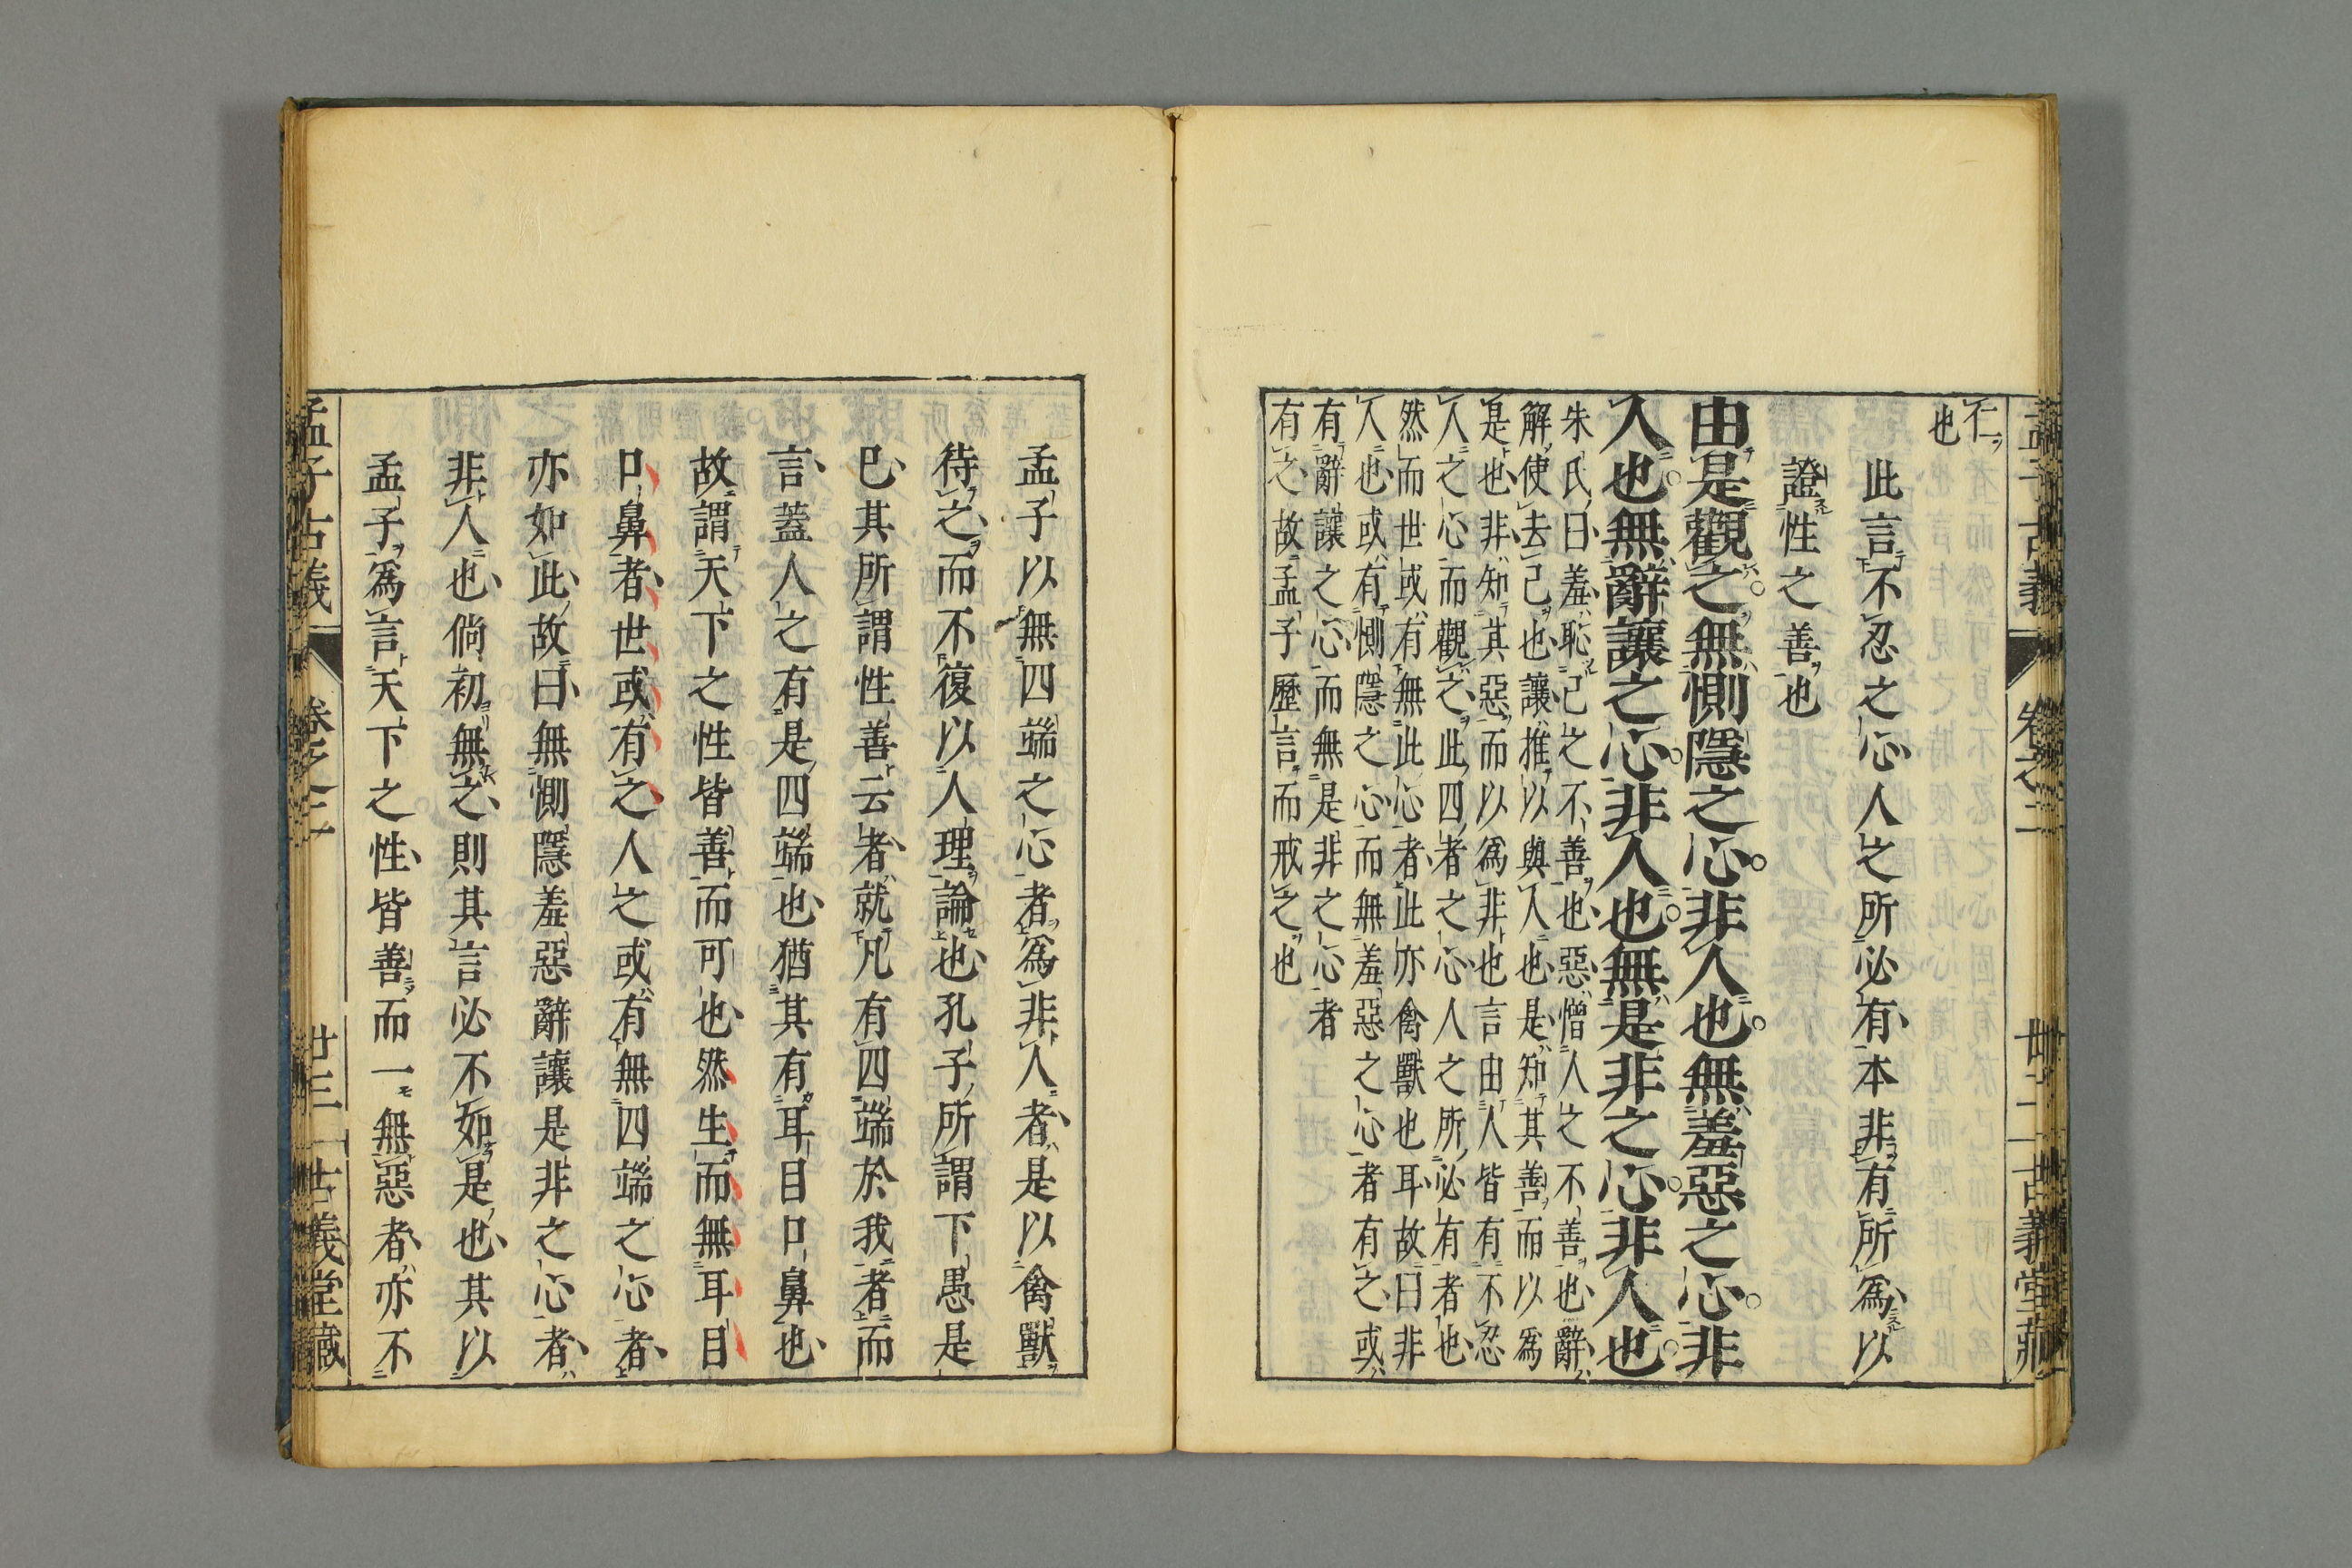 孟子古義 卷之二 廿二 古義堂藏
仁
也
此言不忍之心人之所必有本非有所爲以
證性之善也
由是觀之無惻隱之心非人也無羞惡之心非
人也無辭讓之心非人也無是非之心非人也
朱氏曰羞恥己之不善也惡憎人之不善也辭
解使去己也讓推以與人也是知其善而以爲
是也非知其惡而以爲非也言由人皆有不忍
人之心而觀之此四者之心人之所必有者也
然而世或有無此心者此亦禽獸也耳故曰非
人也或有惻隱之心而無羞惡之心者有之或
有辭讓之心而無是非之心者
有之故孟子歷言而戒之也
孟子以無四端之心者爲非人者是以禽獸
待之而不復以人理論也孔子所謂下愚是
已其所謂性善云者就凡有四端於我者而
言蓋人之有是四端也猶其有耳目口鼻也
故謂天下之性皆善而可也然生而無耳目
口鼻者世或有之人之或有無四端之心者
亦如此故曰無惻隱羞惡辭讓是非之心者
非人也倘初無之則其言必不如是也其以
孟子爲言天下之性皆善而一無惡者亦不
孟子古義 卷之二 廿三 古義堂藏